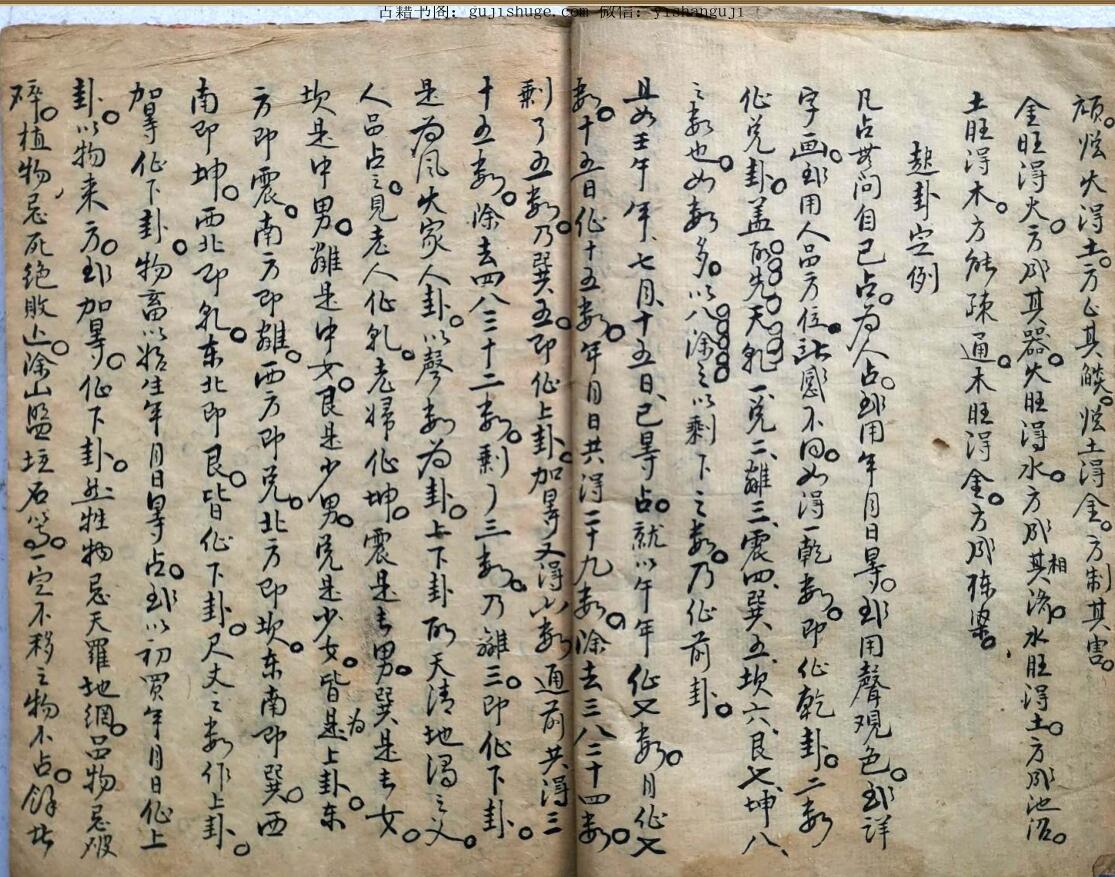 古籍书图：gujishuge.com 微信：yishanguji
炫火得土。方止其燄。炫土得金。方制其害。
金旺得火。方成其器。火旺得水。方成其相濟。水旺得土。方成池沼。
土旺得木。方能疎通。木旺得金。方成棟樑。
起卦定例
凡占無問自己占。為人占。或用年月日時。或用聲觀色。或詳
字画。或用人品方位。感不同。如得一乾数。即作乾卦。二数
作兌卦。盖取先天乾一、兌二、離三、震四、巽五、坎六、艮七、坤八、
之数也。如数多。以八除之。以剩下之数。乃作前卦。
且如壬午年、七月、十五日、巳時占。就以午年作七数。月作七
数。十五日作十五数。年月日共得二十九数。除去三八二十四数。
剩了五数。乃巽五。即作上卦。加時又得六数通前共得三
十五数。除去四八三十二数。剩了三数。乃離三。即作下卦。
是為風火家人卦。以聲数為卦。上下卦取天清地濁之义。
人品占之。見老人作乾。老婦作坤。震是長男。巽是長女。
坎是中男。離是中女。艮是少男。兌是少女。皆是為上卦。東
方即震。南方即離。西方即兌。北方即坎。東南即巽。西
南即坤。西北即乾。东北即艮。皆作下卦。尺丈之数作上卦。
加時作下卦。物畜以始生年月日時占。或以初買年月日作上
卦。以物来方。或加時。作下卦。然牲物忌天羅地網。品物忌破
碎。植物忌死絶敗。上除山盤垣石等。一定不移之物不占。餘皆